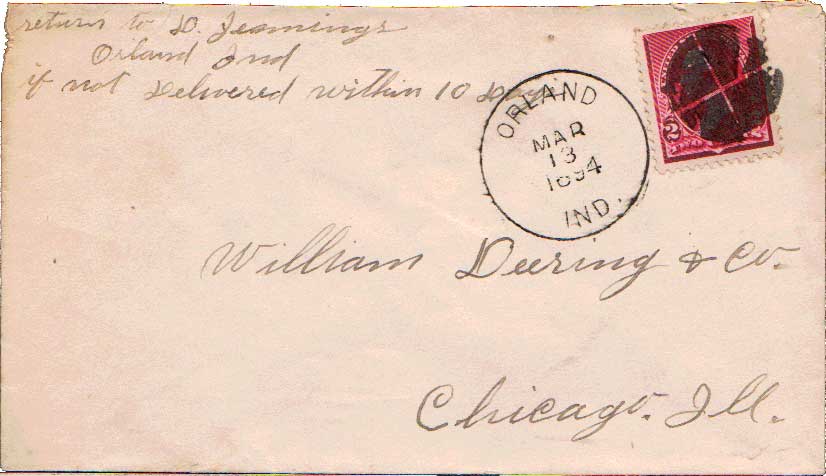 return to D. Jennings
Orland Ind
if not Delivered within 10 Days
ORLAND
MAR
13
1894
IND.
2
William Deering & Co.
Chicago. Ill.